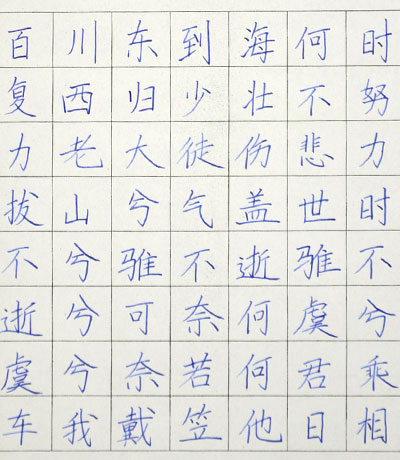 百川东到海何时
复西归少壮不努
力老大徒伤悲力
拔山兮气盖世时
不兮骓不逝骓不
逝兮可奈何虞兮
虞兮奈若何君乘
车我戴笠他日相